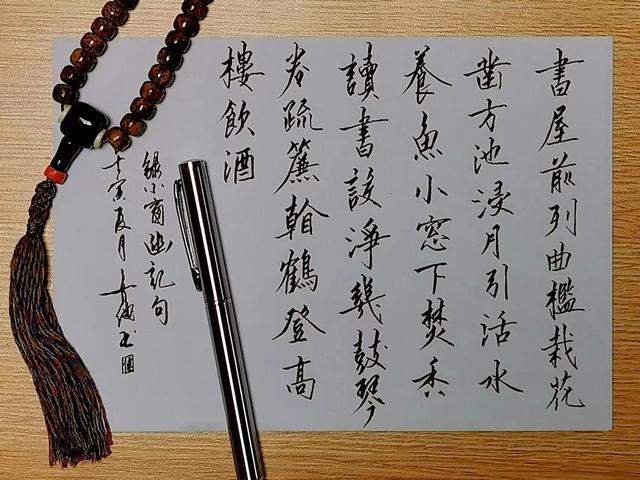 書屋前列曲檻栽花
凿方池浸月引活水
養魚小窓下焚香
讀書設淨幾鼓琴
卷疏簾看鶴登高
樓飲酒
錄小窗幽記句
壬寅夏月